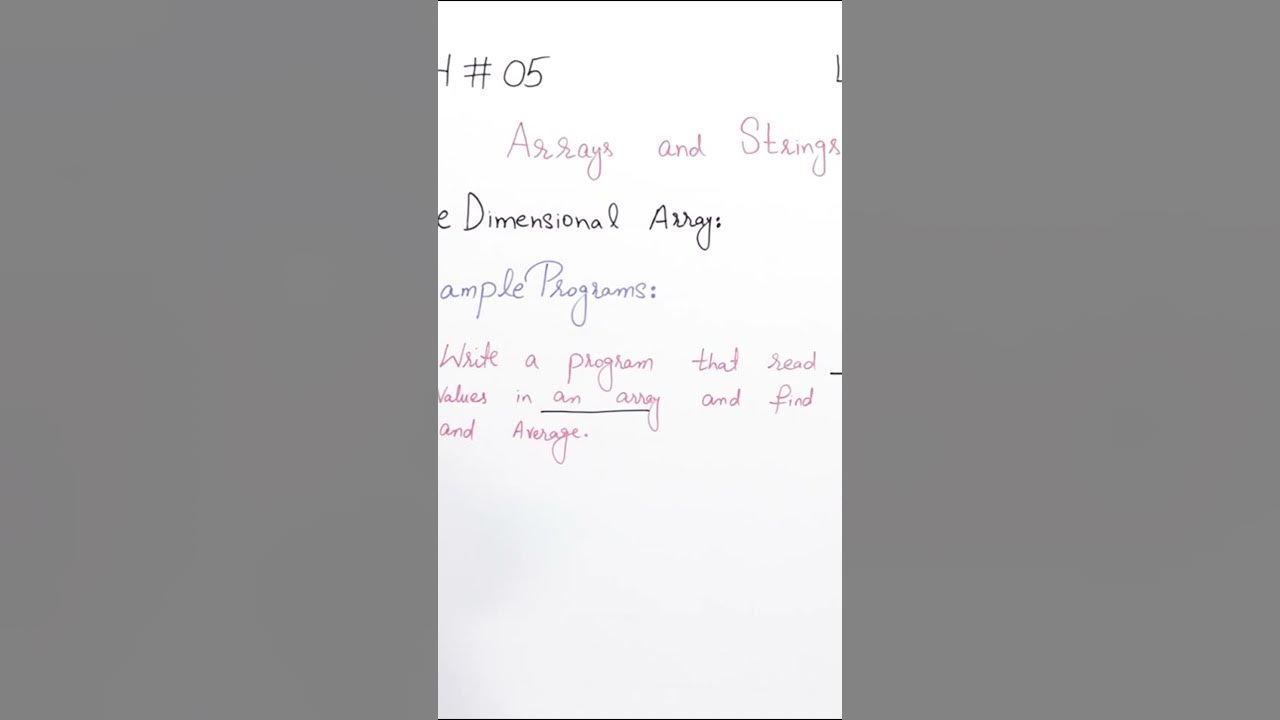 H # 05
Arrays and Strings
e Dimensional Array:
ample Programs:
Write a program that read
Values in an array and find
and Average.